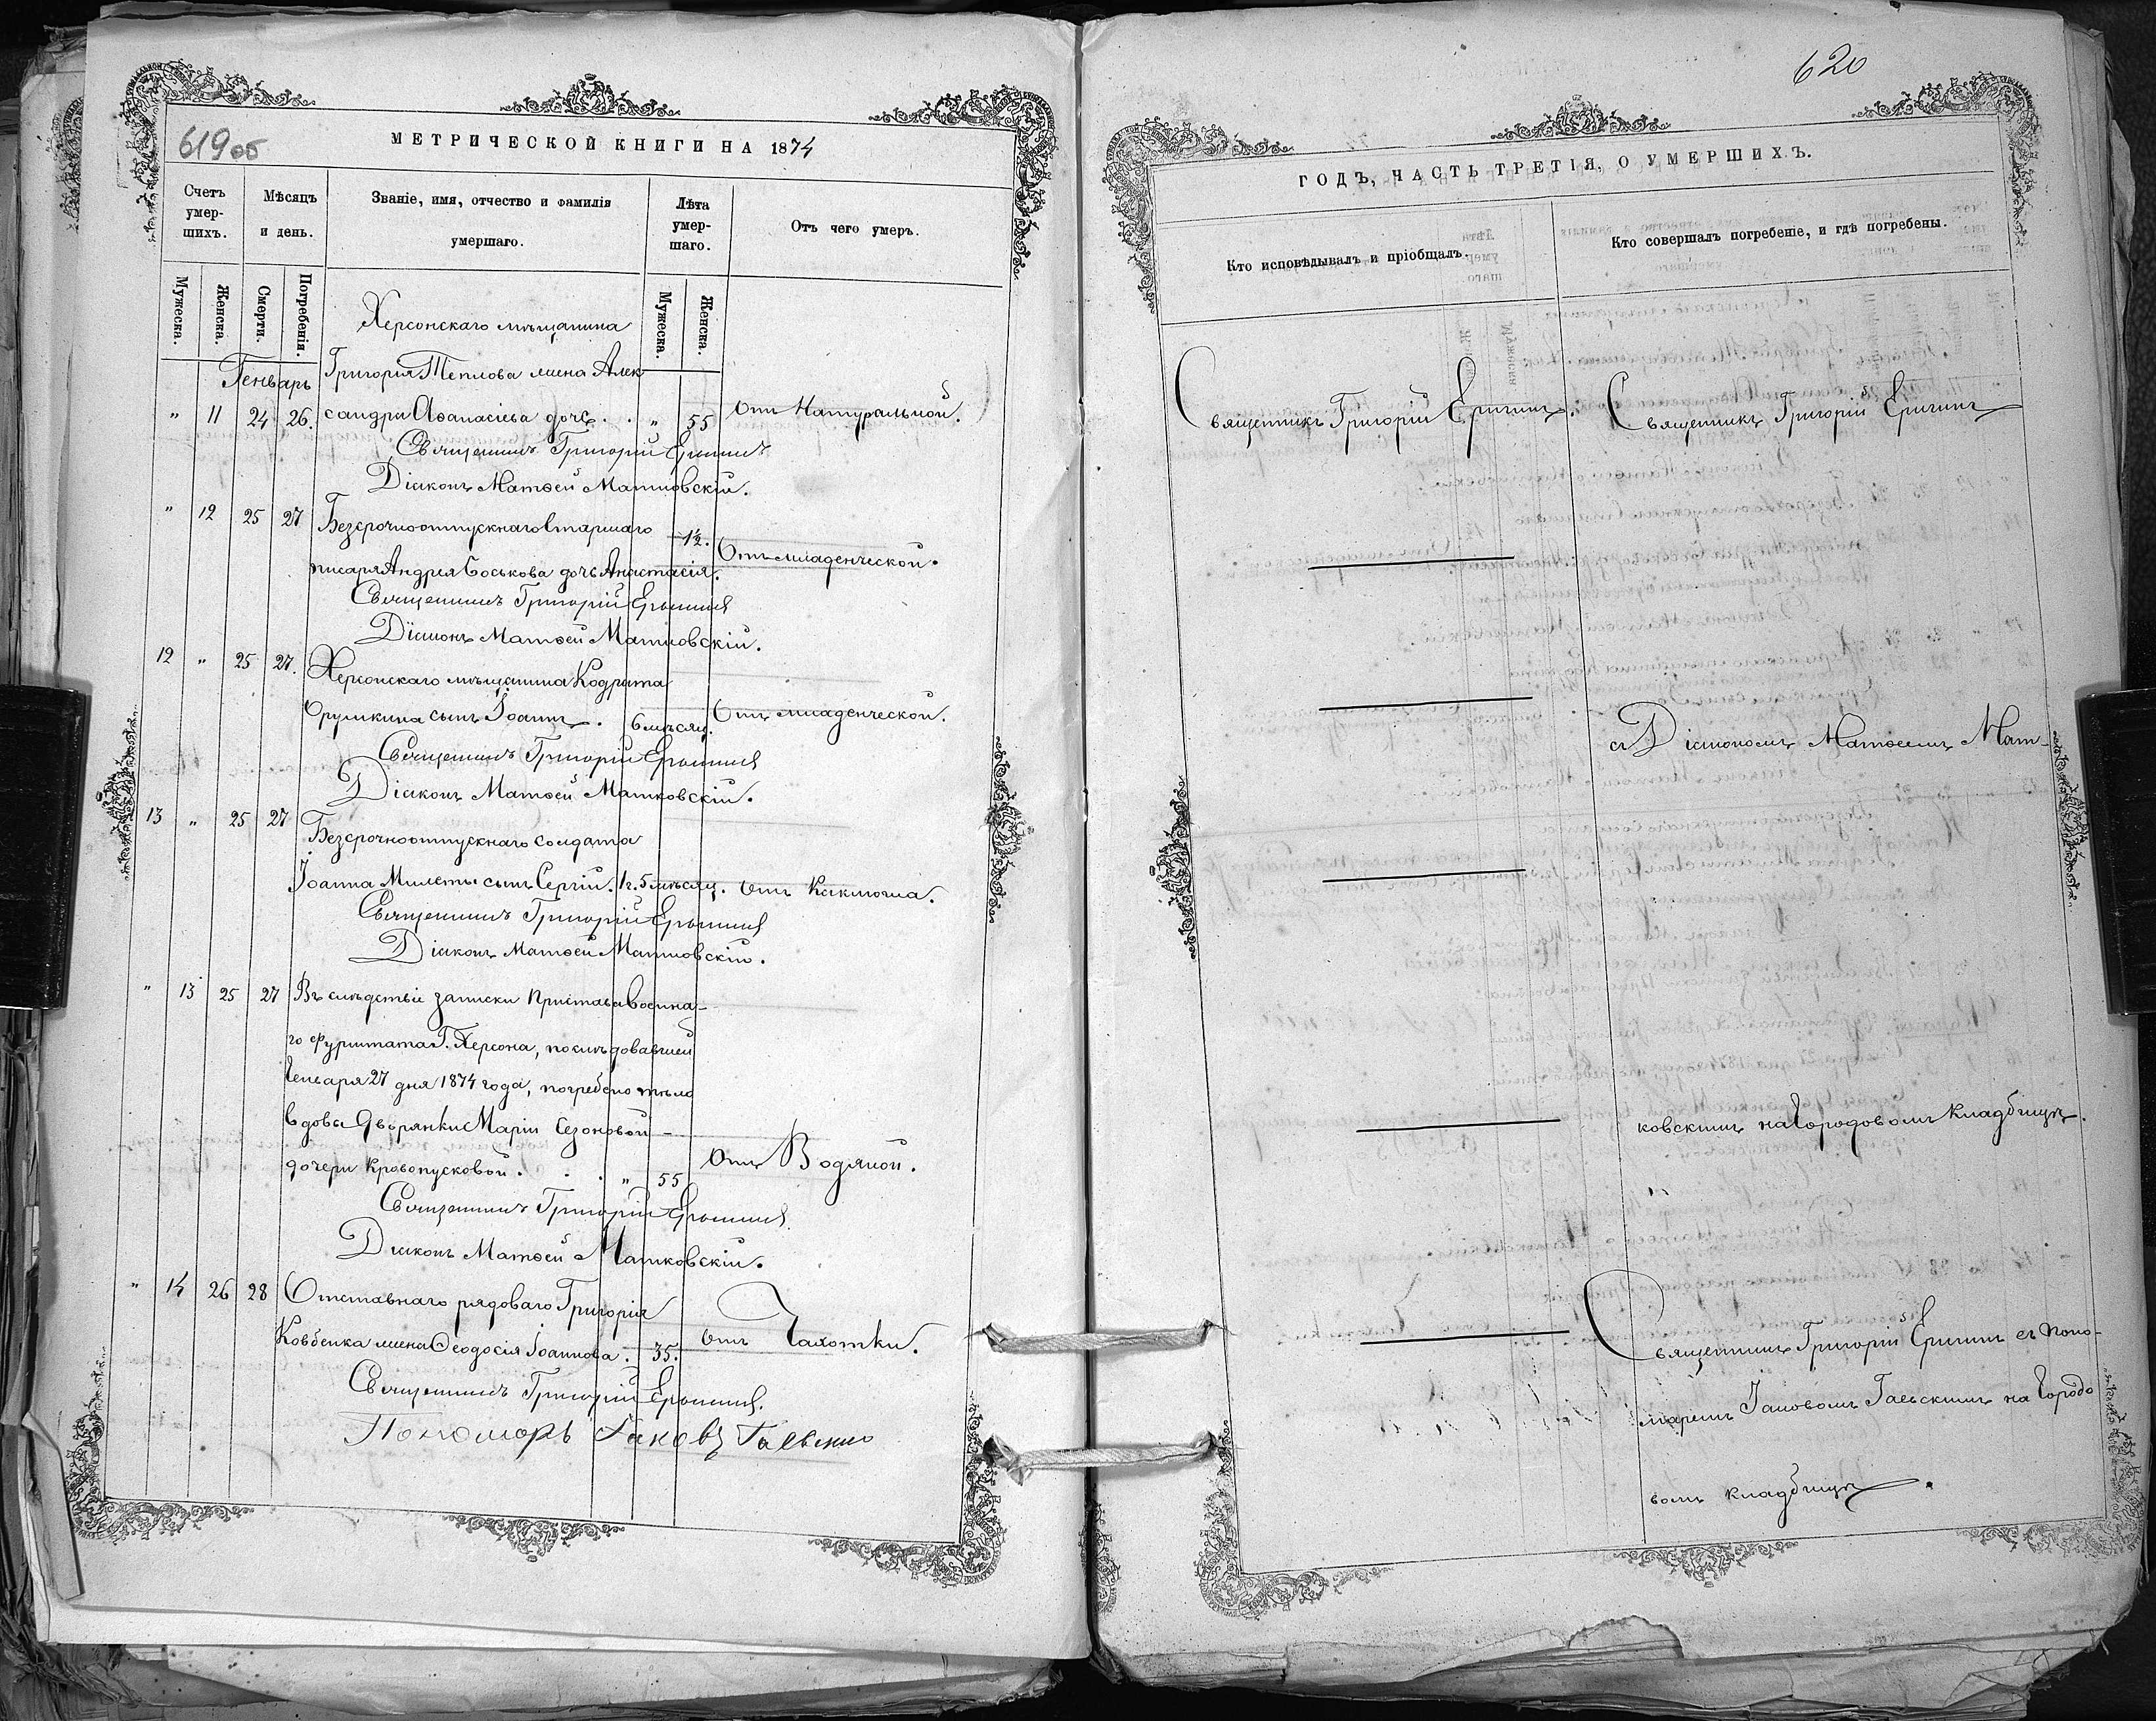 619 об
МЕТРИЧЕСКОЙ КНИГИ НА 1874
Счетъ умер-шихъ.
Мѣсяцъ и день.
Званіе, имя, отчество и фамилія умершаго.
Лѣта умер-шаго.
Отъ чего умеръ.
Мужеска.
Женска.
Смерти.
Погребенія.
Мужеска.
Женска.
Генварь
Херсонскаго мѣщанина
Григорія Теплова жена Алек-
" 11 24 26. сандра Аѳанасіева дочь . . " 55 Отъ Натуральной.
Священникъ Григорій
Діаконъ Матѳей Матковскій.
" 12 25 27 Безсрочноотпускнаго Старшаго 1½.
писаря Андрея Боськова дочь Анастасія. Отъ младенческой.
Священникъ Григорій
Діаконъ Матѳей Матковскій.
12 " 25 27. Херсонскаго мѣщанина Кодрата
сынъ Іоаннъ. 6 мѣсяц. Отъ младенческой.
Священникъ Григорій
Діаконъ Матѳей Матковскій.
13 " 25 27 Безсрочноотпускнаго солдата
Іоанна Милеты сынъ Сергій. 1 г. 5 мѣсяц. отъ Каклюша.
Священникъ Григорій
Діаконъ Матѳей Матковскій.
" 13 25 27 Въ слѣдствіе записки Пристава Военна-
го Фурштата Г. Херсона, послѣдовавшей
Генваря 27 дня 1874 года, погребено тѣло
вдовы Дворянки Маріи Сезоновой
дочери Кровопусковой . . . " 55 Отъ Водяной.
Священникъ Григорій
Діаконъ Матѳей Матковскій.
" 14 26 28 Отставнаго рядоваго Григорія
Ковбенка жена Ѳеодосія Іоаннова. 35. отъ Чахотки.
Священникъ Григорій
Пономарь Іаковъ Гаевскій
620
ГОДЪ, ЧАСТЬ ТРЕТІЯ, О УМЕРШИХЪ.
Кто исповѣдывалъ и пріобщалъ.
Кто совершалъ погребеніе, и гдѣ погребены.
Священникъ Григорій
Священникъ Григорій
съ Діакономъ Матѳеемъ Мат-
ковскимъ на Городовомъ Кладбищѣ.
Священникъ Григорій съ Поно-
маремъ Іаковомъ Гаевскимъ на Городо
вомъ кладбищѣ.